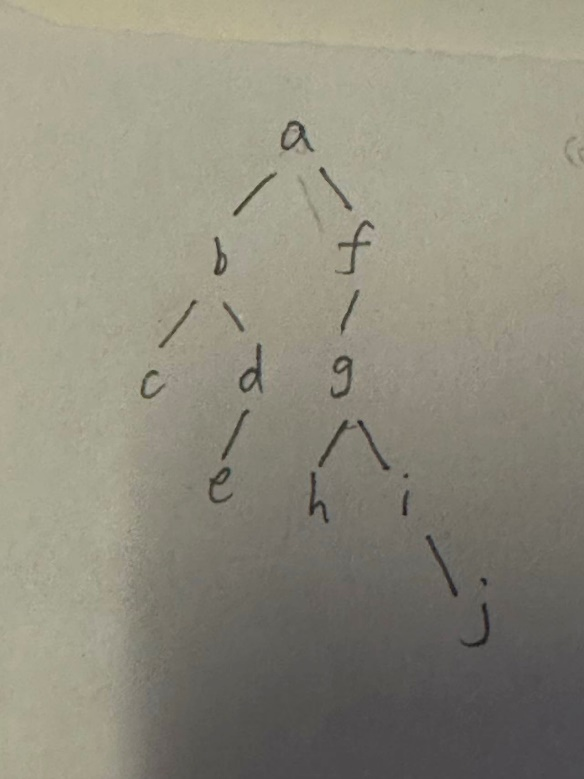 a
b f
c d g
e h i
j